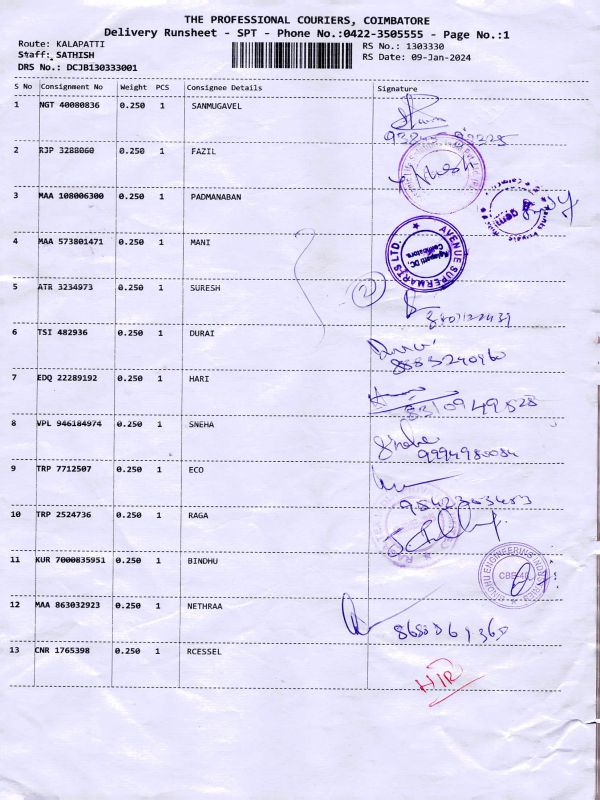 THE PROFESSIONAL COURIERS, COIMBATORE
Delivery Runsheet - SPT - Phone No.:0422-3505555 - Page No.:1
Route: KALAPATTI RS No.: 1303330
Staff: SATHISH RS Date: 09-Jan-2024
DRS No.: DCJB130333001
S No Consignment No Weight PCS Consignee Details Signature
1 NGT 40080836 0.250 1 SANMUGAVEL
2 RJP 3288060 0.250 1 FAZIL
3 MAA 108006300 0.250 1 PADMANABAN
4 MAA 573801471 0.250 1 MANI
AVENUE SUPERMARTS LTD.
Kalapatti DC, Coimbatore.
5 ATR 3234973 0.250 1 SURESH
2
6 TSI 482936 0.250 1 DURAI
8883240960
7 EDQ 22289192 0.250 1 HARI
8310949528
8 VPL 946184974 0.250 1 SNEHA
Sneha
9994980084
9 TRP 7712507 0.250 1 ECO
10 TRP 2524736 0.250 1 RAGA
11 KUR 7000835951 0.250 1 BINDHU
12 MAA 863032923 0.250 1 NETHRAA
13 CNR 1765398 0.250 1 RCESSEL